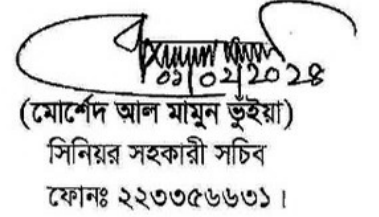 ০১/০২/2024
(মোর্শেদ আল মামুন ভুঁইয়া)
সিনিয়র সহকারী সচিব
ফোনঃ ২২৩৩৫৬৬৩১।